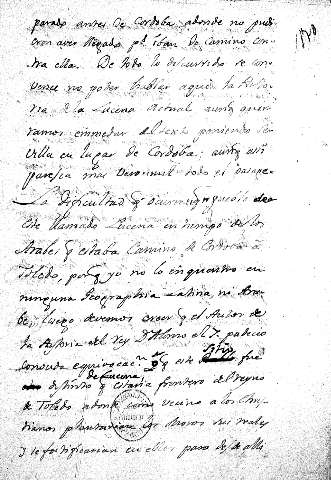 parado antes de Cordoba adonde no pudi
eron aver llegado pr. iban de camino con
tra ella. De todo lo discurrido se con
vence no poder hablar aqui la Histo
ria de la Lucena actual aunq. quer
ramos enmendar el text poniendo Se
villa en lugar de Cordoba; aunq. assi
paresca mas
La dificultad q.
este llamado Lucena en tiempo de los
Arabes q estaba Camino de Cordova a
Toledo, porq yo no lo enquentro en
ninguna Geographia Latina, ni Ara
be, luego devemos creer q el Autor de
la Historia del Rey Dn. Alonso el 7. padecio
conocida equivocacn. q este sitio fue
distinto de Lucena y estaria frontero del reyno
de Toledo adonde como vecino a los Chris
tianos plantarian los Moros sus reales
y se fortificarian en ellos para desde alli